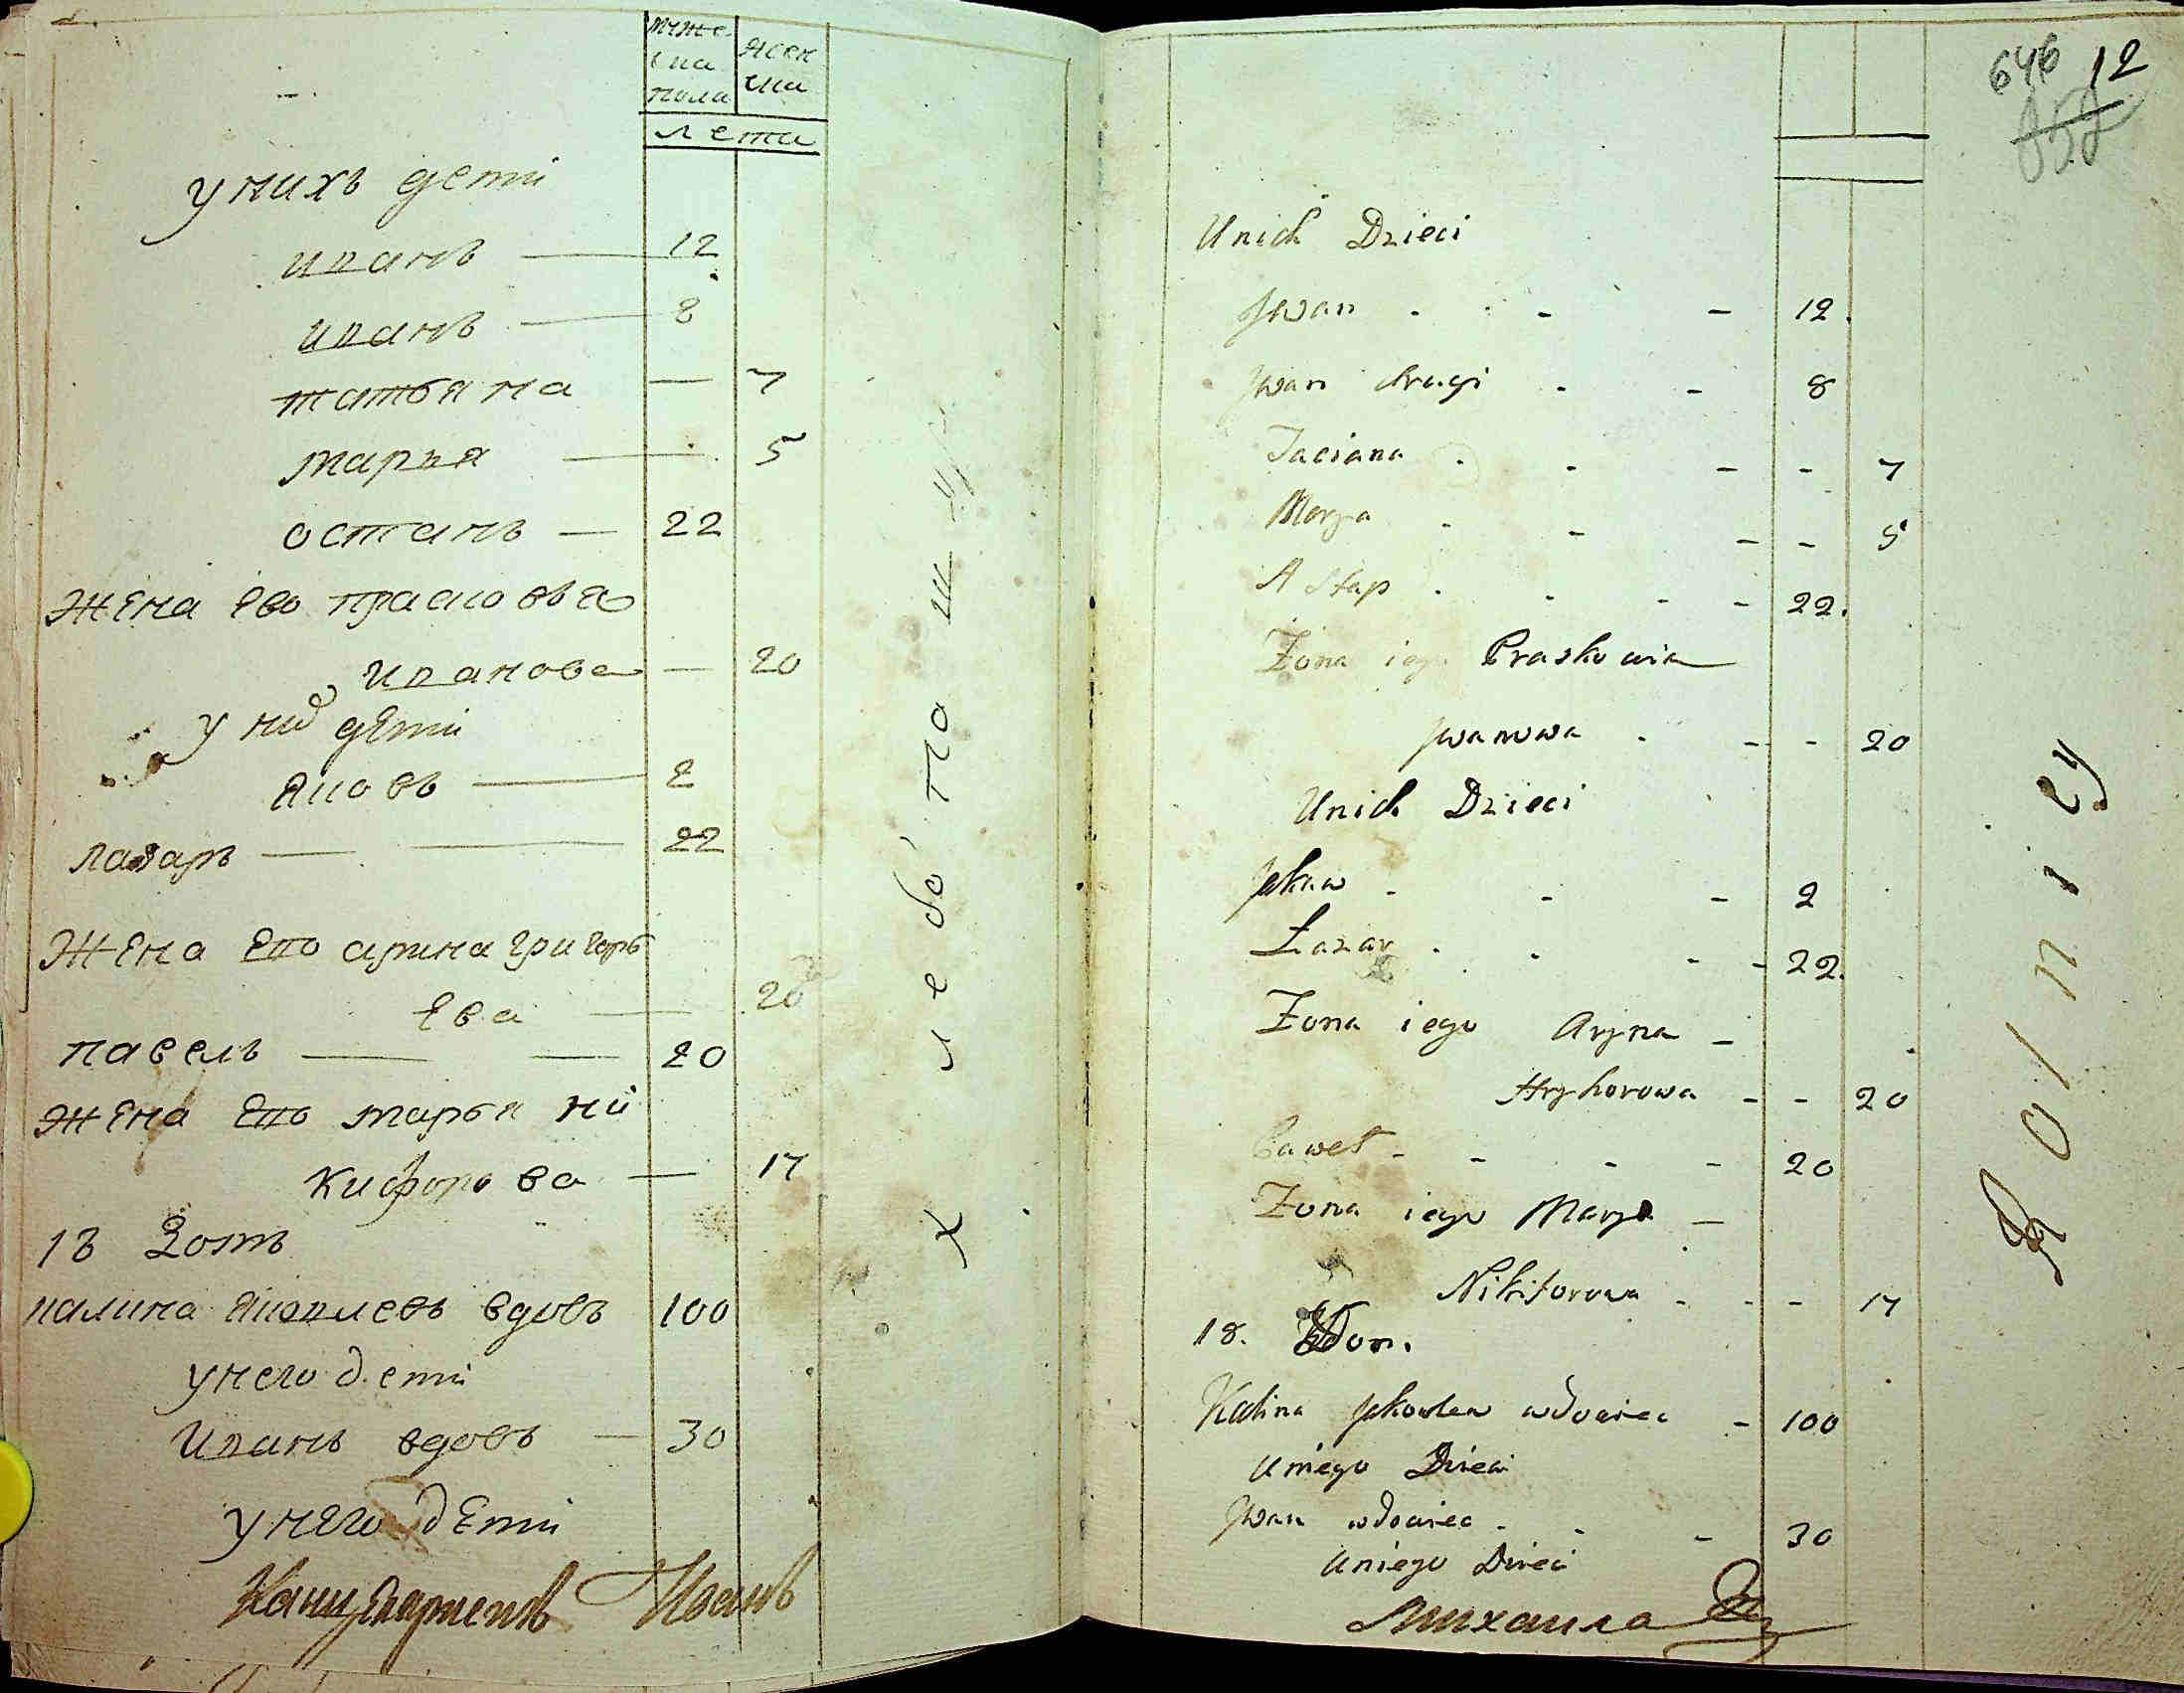 муже
ска
пола
женска
лета
у нихъ дети
иванъ — 12
иванъ — 8
татьяна — 7
марья — 5
остапъ — 22
жена ево прасковея
иванова — 20
у них дети
яковъ — 2
лазаръ — 22
жена ево арина григорь
ева — 20
павелъ — 20
жена ево марья ни
кифорова — 17
18 домъ
калина яковлевъ вдовъ 100
у него дети
иванъ вдовъ — 30
у него дети
Канцеляристъ Иванъ
646 12
Unich Dzieci
Jwan - - 12.
Jwan drugi - - 8
Taciana - - - 7
Marya - - - 5
Astap - - - 22.
Żona iego Praskowia
Jwanowa - - 20
Unich Dzieci
Jakow - - - 2
Łazar - - - 22.
Żona iego Aryna -
Hryhorowa - - 20
Paweł - - - 20
Żona iego Marya -
Nikiforowa - - 17
18. Dom.
Kalina Jakowlew wdowiec - 100
Uniego Dzieci
Jwan wdowiec - - 30
Uniego Dzieci
Михаила